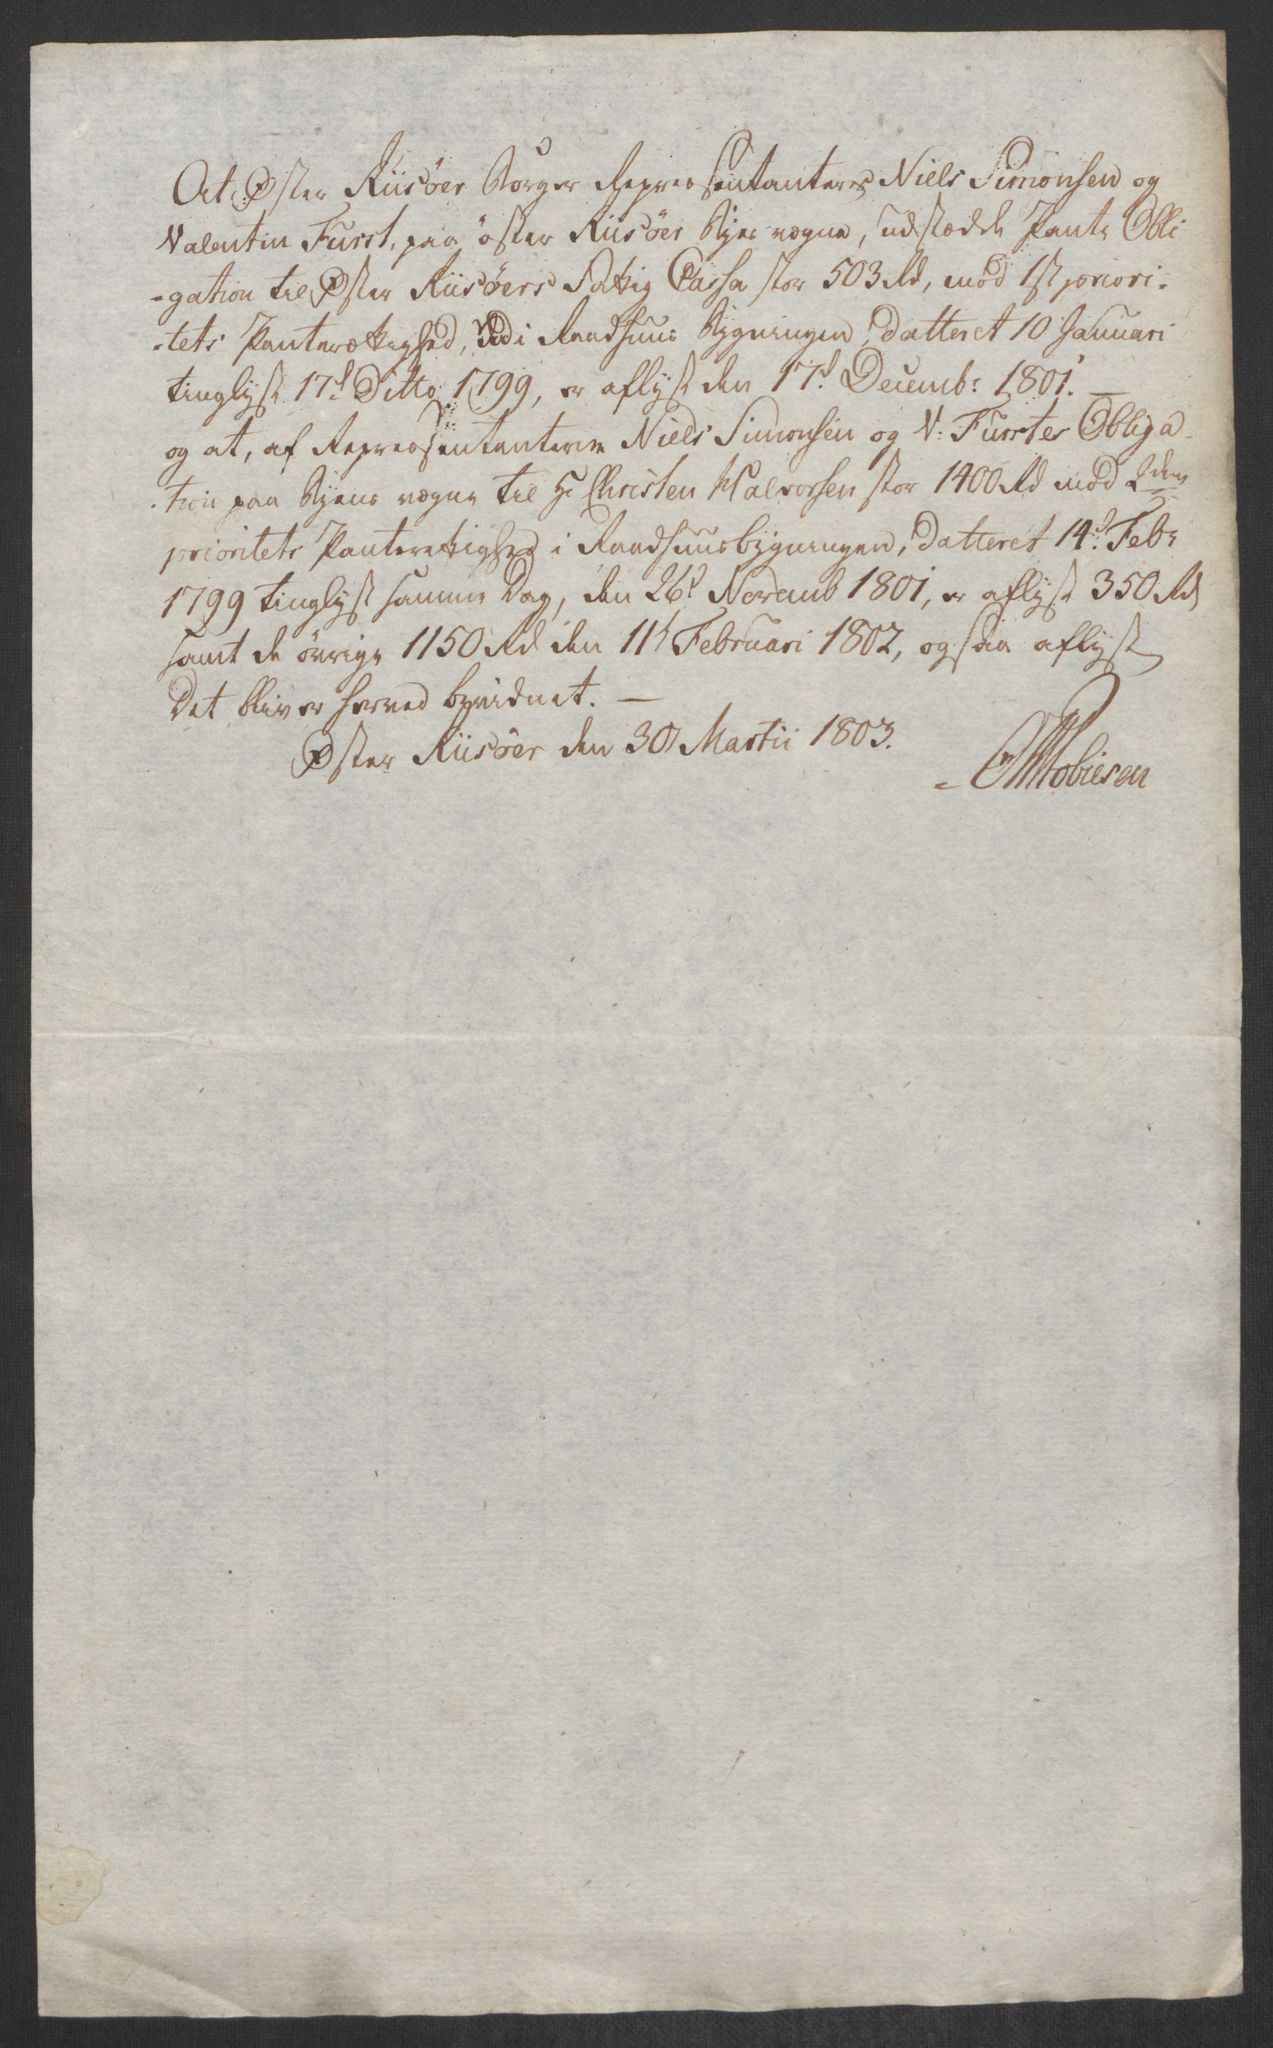 At Øster Riisöer Borger Repræsentanteres Niels Simonsen og
Valentin Furst, paa öster Riisöer Byes vegne, udstædde Pante Obli
-gation til Øster Riisöers Fattig Cassa stor 503 Rd, mod 1st priori-
-tets Panterættighed, i Raadhuus Bygningen, datteret 10 Januari
tinglyst 17d Ditto 1799, er aflyst den 17d Decemb: 1801. —
og at, af Repræsentanterne Niels Simonsen og V: Furstes Obliga-
-tion paa Byens vegne til Hr Christen Halvorsen stor 1400 Rd mod 2den
prioritets Panterettighed i Raadhuusbygningen, datteret 14d Febr
1799 tinglyst samme Dag, den 26d Novemb 1801, er aflyst 350 Rd
samt de övrige 1150 Rd den 11t Februari 1802, ogsaa aflyst
Det bliver herved bevidnet. —
Øster Riisöer den 30 Martii 1803.